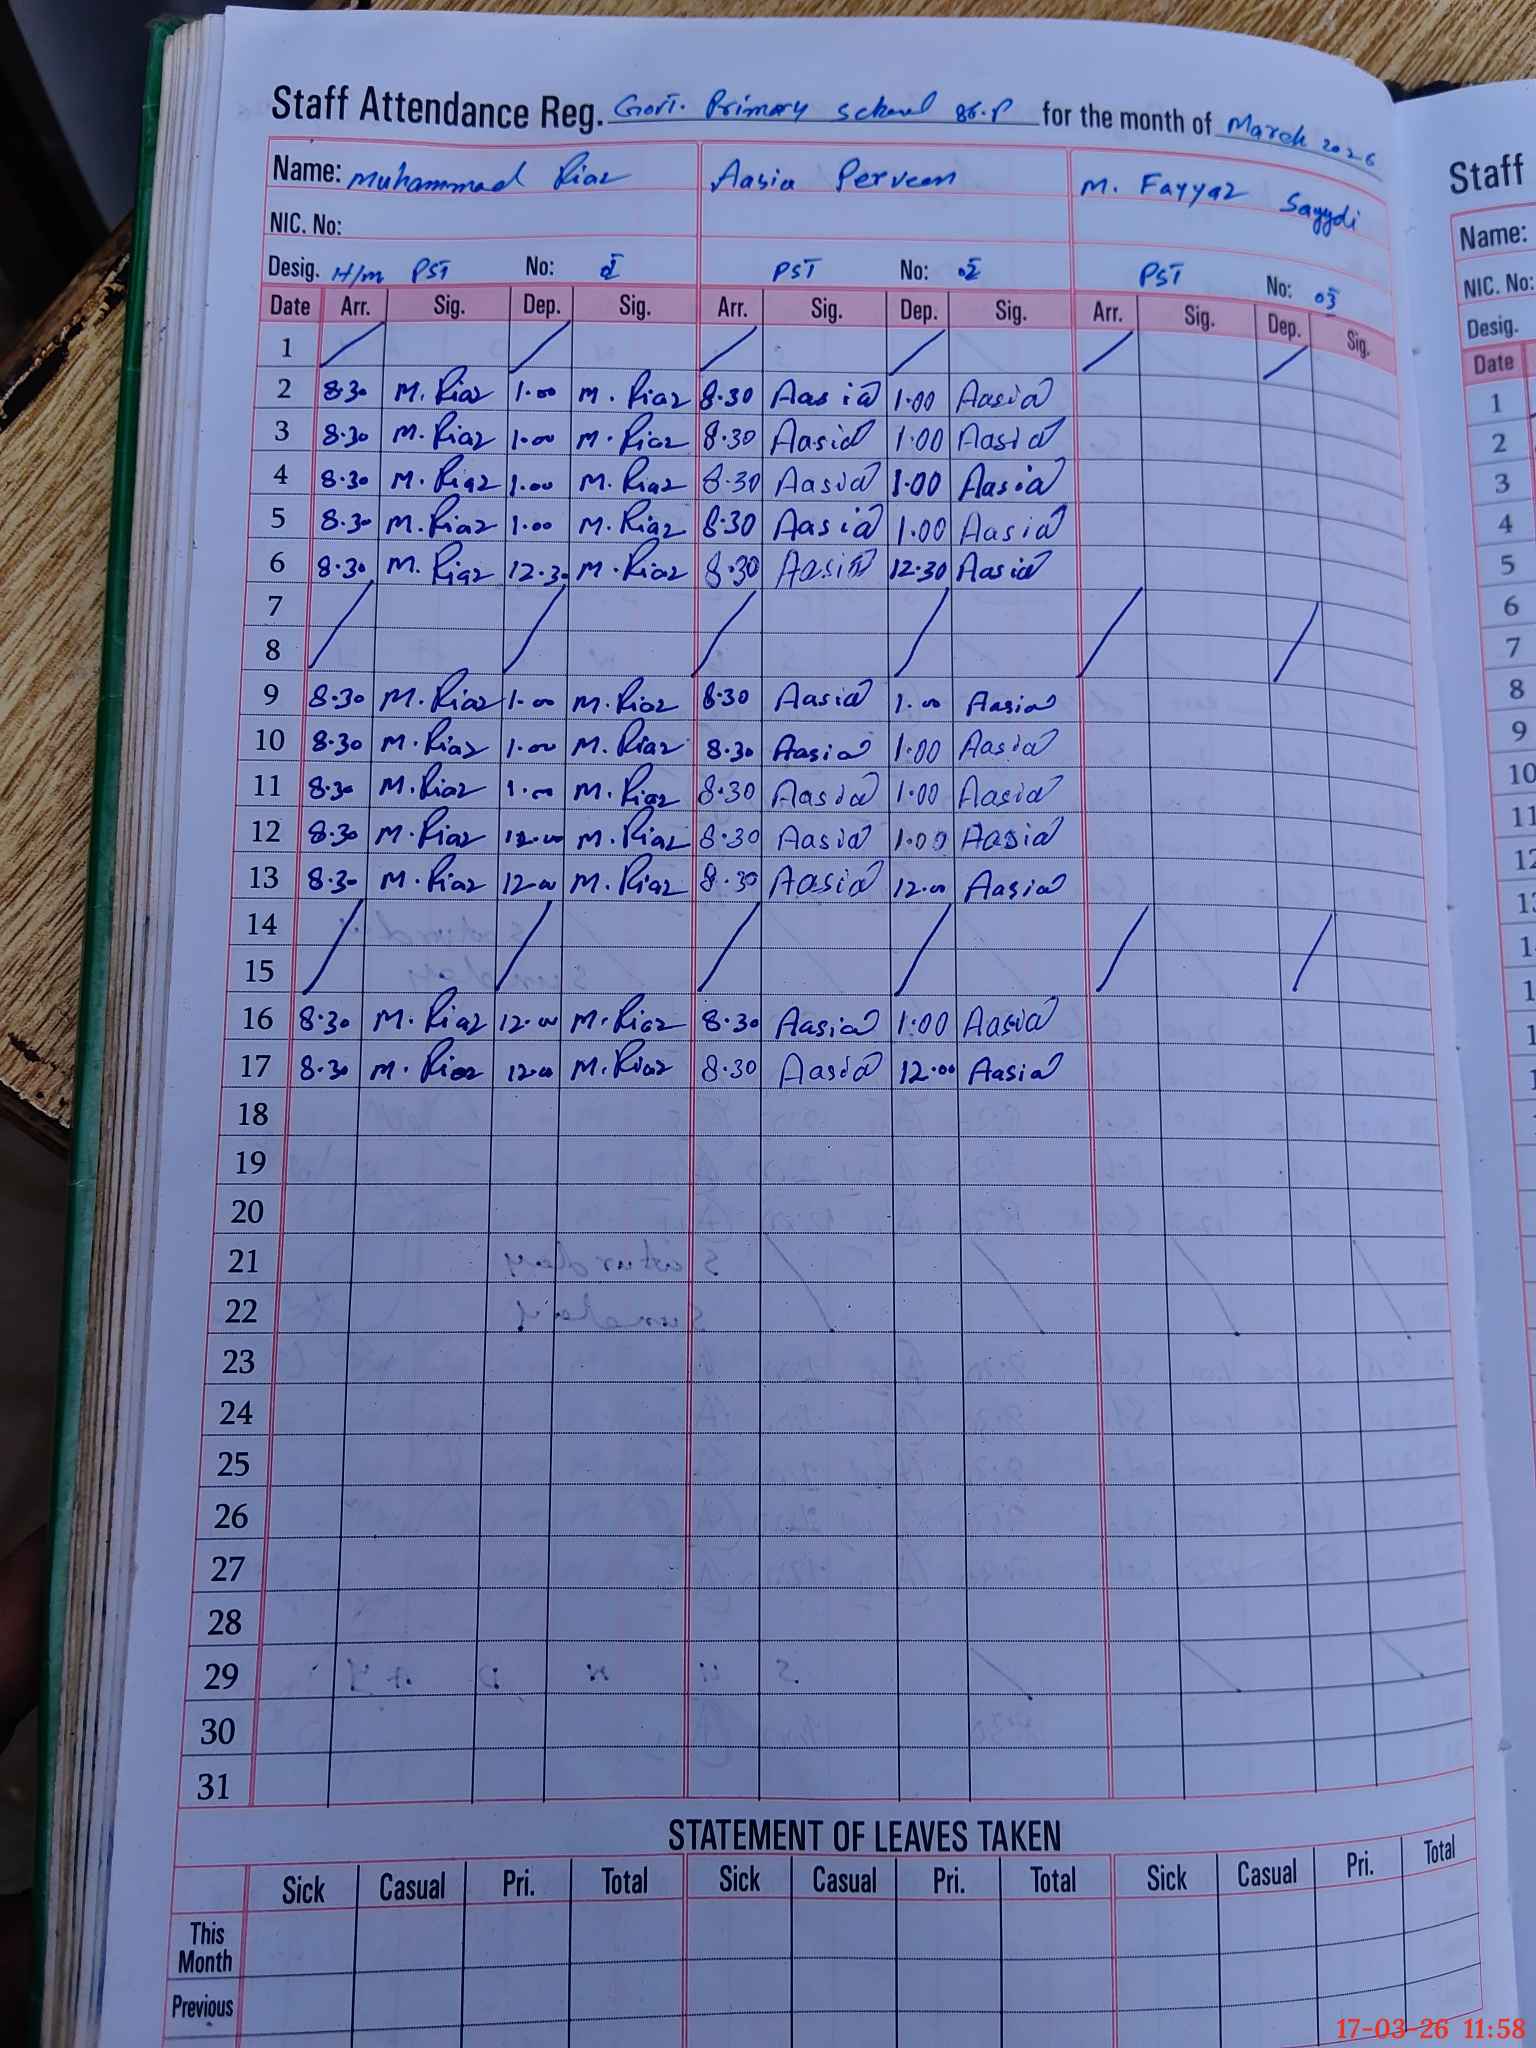 Staff Attendance Reg. Govt. Primary school 86.P for the month of March 2026
Name: Muhammad Riaz Aasia Perveen M. Fayyaz Sayydi
NIC. No:
Desig. H/m PST No: 01 PST No: 02 PST No: 03
Date Arr. Sig. Dep. Sig. Arr. Sig. Dep. Sig. Arr. Sig. Dep. Sig.
1
2 8.30 M. Riaz 1.00 M. Riaz 8.30 Aasia 1.00 Aasia
3 8.30 M. Riaz 1.00 M. Riaz 8.30 Aasia 1.00 Aasia
4 8.30 M. Riaz 1.00 M. Riaz 8.30 Aasia 1.00 Aasia
5 8.30 M. Riaz 1.00 M. Riaz 8.30 Aasia 1.00 Aasia
6 8.30 M. Riaz 12.30 M. Riaz 8.30 Aasia 12.30 Aasia
7
8
9 8.30 M. Riaz 1.00 M. Riaz 8.30 Aasia 1.00 Aasia
10 8.30 M. Riaz 1.00 M. Riaz 8.30 Aasia 1.00 Aasia
11 8.30 M. Riaz 1.00 M. Riaz 8.30 Aasia 1.00 Aasia
12 8.30 M. Riaz 12.00 M. Riaz 8.30 Aasia 1.00 Aasia
13 8.30 M. Riaz 12.00 M. Riaz 8.30 Aasia 12.00 Aasia
14
15
16 8.30 M. Riaz 12.00 M. Riaz 8.30 Aasia 1.00 Aasia
17 8.30 M. Riaz 12.00 M. Riaz 8.30 Aasia 12.00 Aasia
18
19
20
21
22
23
24
25
26
27
28
29
30
31
STATEMENT OF LEAVES TAKEN
Sick Casual Pri. Total Sick Casual Pri. Total Sick Casual Pri. Total
This Month
Previous
Staff
Name:
NIC. No:
Desig.
Date
1
2
3
4
5
6
7
8
9
10
11
12
13
17-03-26 11:58